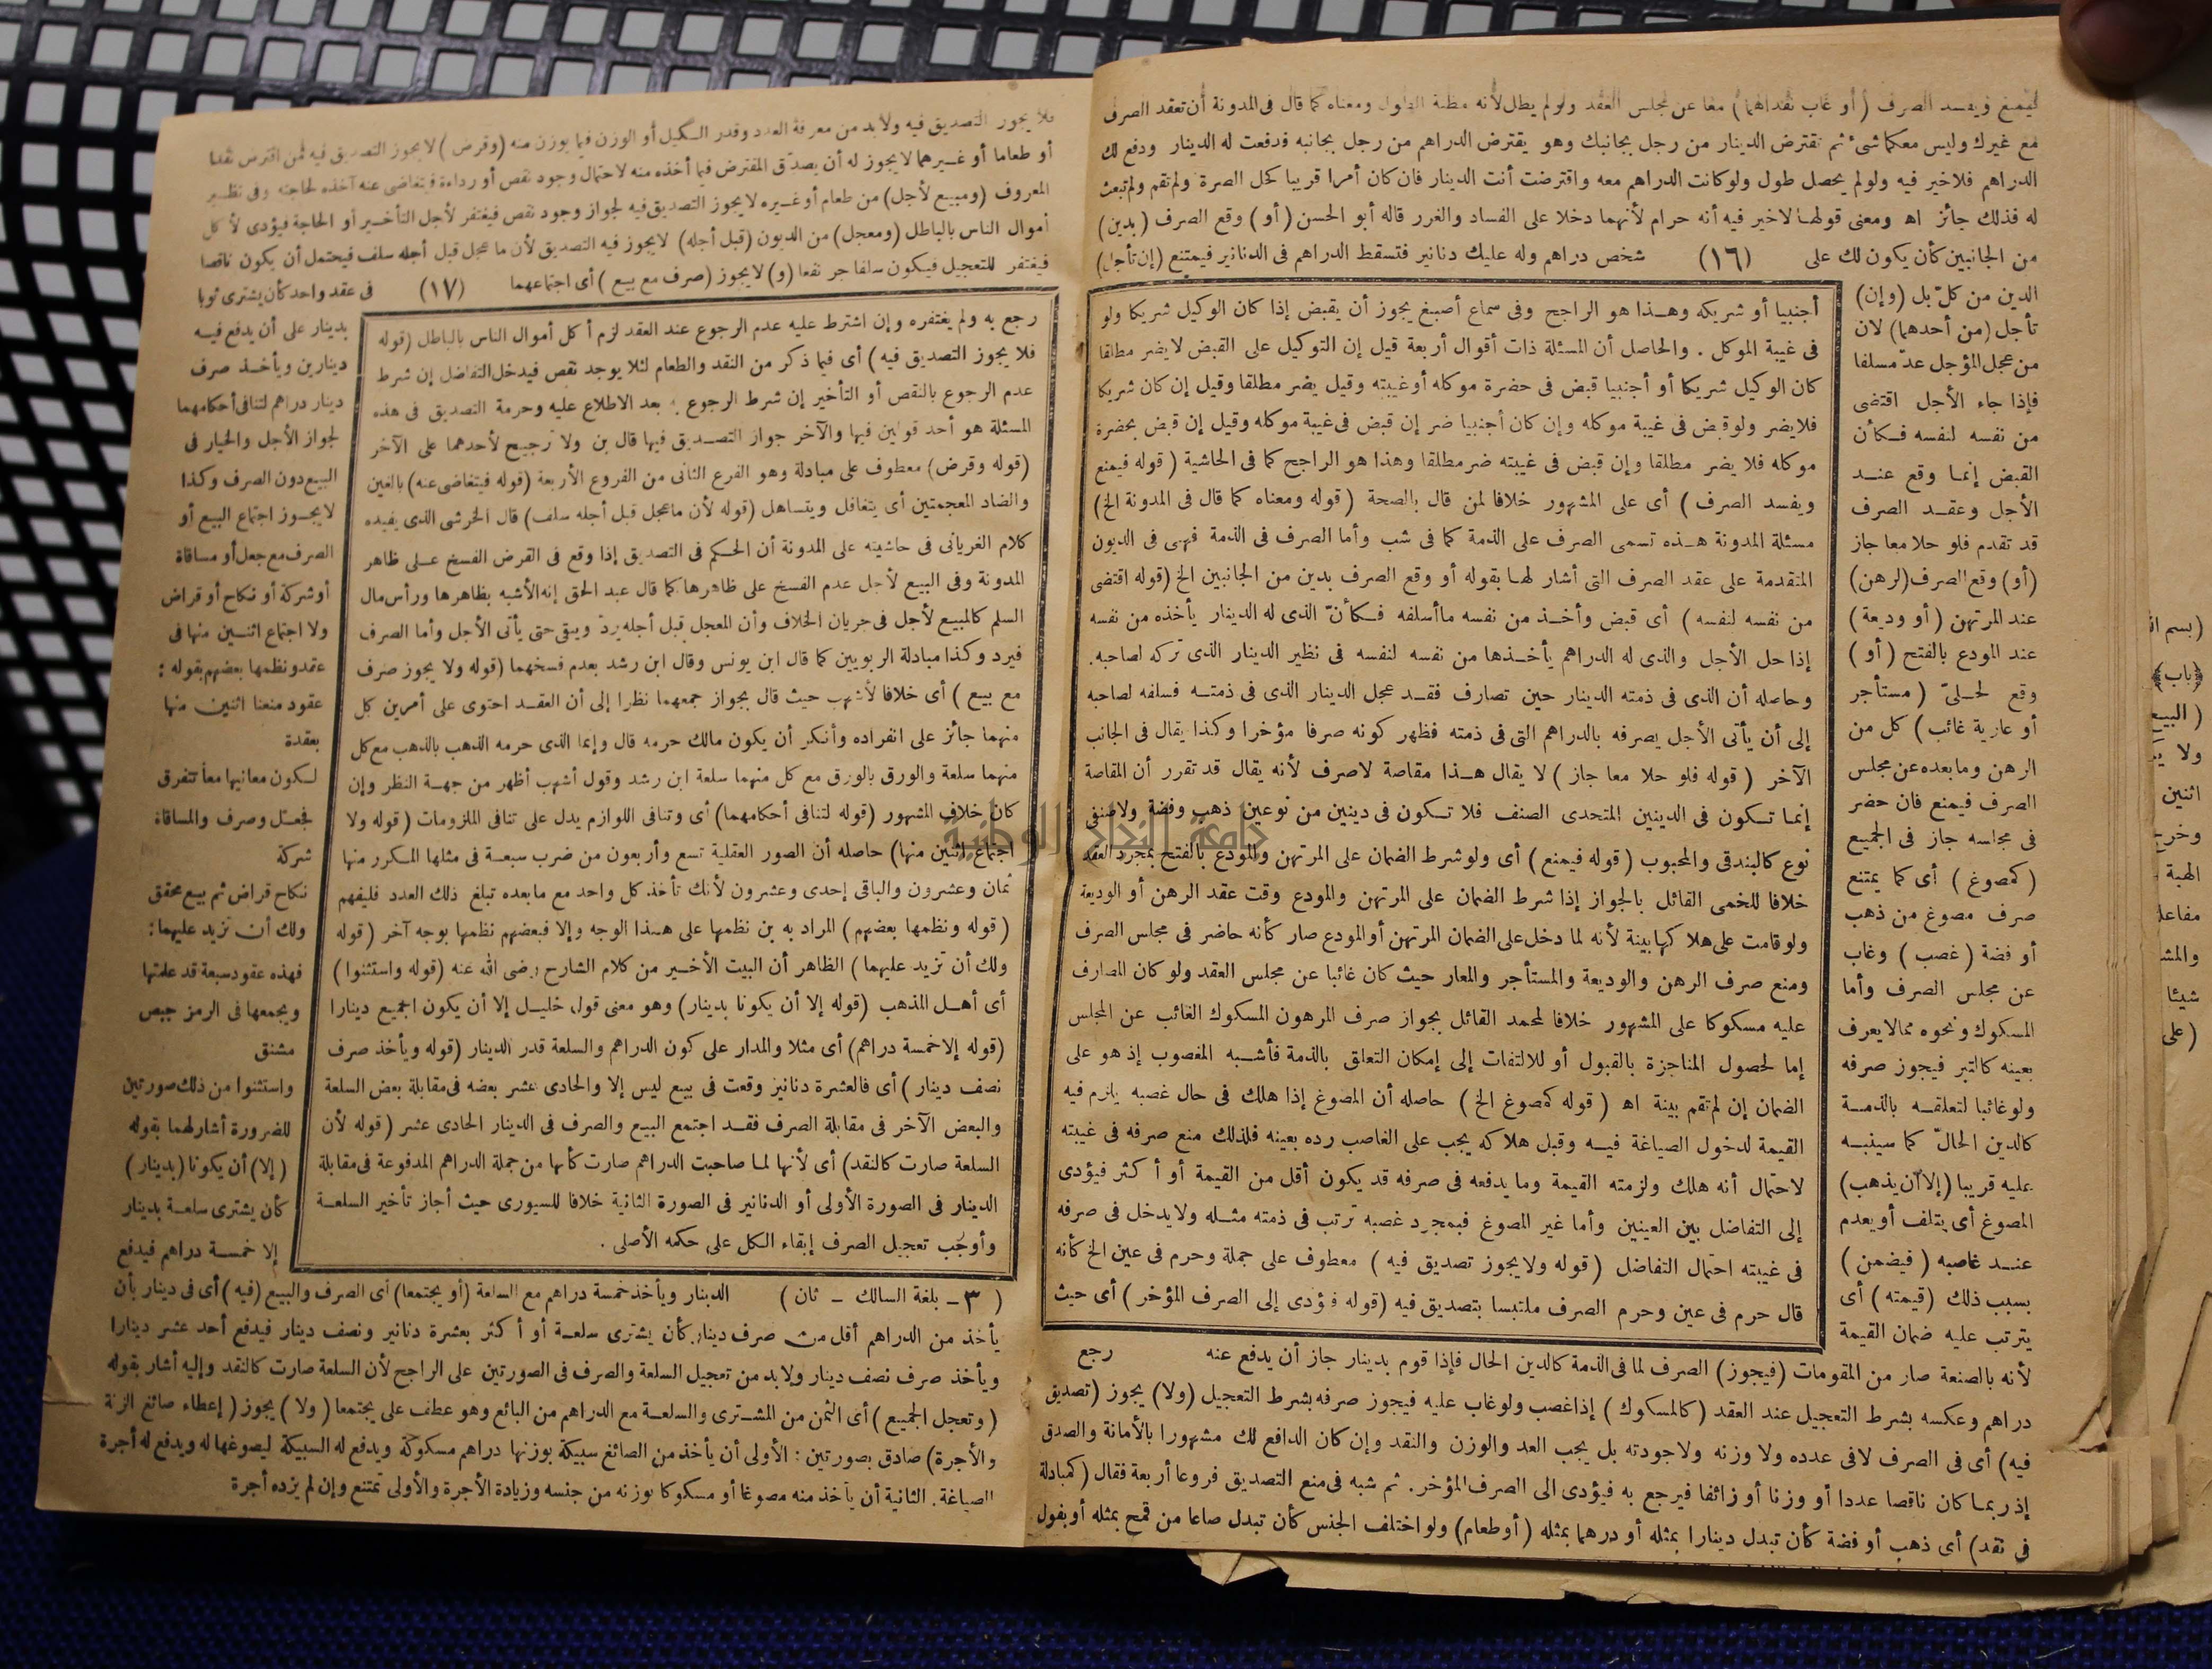 فيمنع ويفسد الصرف (أو غاب نقداهما) معا عن مجلس العقد ولو لم يطل لأنه مظنة الطول ومعناه كما قال فى المدونة أن تعقد الصرف
مع غيرك وليس معكما شىء ثم تقترض الدينار من رجل بجانبك وهو يقترض الدراهم من رجل بجانبه فدفعت له الدينار ودفع لك
الدراهم فلاخير فيه ولولم يحصل طول ولوكانت الدراهم معه واقترضت أنت الدينار فان كان أمرا قريبا كحل الصرة ولم تقم ولم تبعث
له فذلك جائز اه ومعنى قولها لاخير فيه أنه حرام لأنهما دخلا على الفساد والغرر قاله أبو الحسن (أو) وقع الصرف (بدين)
من الجانبين كأن يكون لك على (١٦) شخص دراهم وله عليك دنانير فتسقط الدراهم فى الدنانير فيمتنع (إن تأجل)
الدين من كلّ بل (وإن)
تأجل (من أحدهما) لان
من عجل المؤجل عدّ مسلفا
فإذا جاء الأجل اقتضى
من نفسه لنفسه فكأن
القبض إنما وقع عند
الأجل وعقد الصرف
قد تقدم فلو حلا معا جاز
(أو) وقع الصرف (لرهن)
عند المرتهن (أو وديعة)
عند المودع بالفتح (أو)
وقع لحلىّ (مستأجر
أو عارية غائب) كل من
الرهن ومابعده عن مجلس
الصرف فيمنع فان حضر
فى مجلسه جاز فى الجميع
(كمصوغ) أى كما يمتنع
صرف مصوغ من ذهب
أو فضة (غصب) وغاب
عن مجلس الصرف وأما
المسكوك ونحوه ممالايعرف
بعينه كالتبر فيجوز صرفه
ولوغائبا لتعلقه بالذمة
كالدين الحالّ كما سينبه
عليه قريبا (إلاأن يذهب)
المصوغ أى يتلف أويعدم
عند غاصبه (فيضمن)
بسبب ذلك (قيمته) أى
يترتب عليه ضمان القيمة
أجنبيا أو شريكه وهذا هو الراجح وفى سماع أصبغ يجوز أن يقبض إذا كان الوكيل شريكا ولو
فى غيبة الموكل . والحاصل أن المسئلة ذات أقوال أربعة قيل إن التوكيل على القبض لايضر مطلقا
كان الوكيل شريكا أو أجنبيا قبض فى حضرة موكله أوغيبته وقيل يضر مطلقا وقيل إن كان شريكا
فلايضر ولوقبض فى غيبة موكله وإن كان أجنبيا ضر إن قبض فى غيبة موكله وقيل إن قبض بحضرة
موكله فلا يضر مطلقا وإن قبض فى غيبته ضر مطلقا وهذا هو الراجح كما فى الحاشية (قوله فيمنع
ويفسد الصرف) أى على المشهور خلافا لمن قال بالصحة (قوله ومعناه كما قال فى المدونة الخ)
مسئلة المدونة هذه تسمى الصرف على الذمة كما فى شب وأما الصرف فى الذمة فهى فى الديون
المتقدمة على عقد الصرف التى أشار لها بقوله أو وقع الصرف بدين من الجانبين الخ (قوله اقتضى
من نفسه لنفسه) أى قبض وأخذ من نفسه ماأسلفه فكأنّ الذى له الدينار يأخذه من نفسه
إذا حل الأجل والذى له الدراهم يأخذها من نفسه لنفسه فى نظير الدينار الذى تركه لصاحبه.
وحاصله أن الذى فى ذمته الدينار حين تصارف فقد عجل الدينار الذى فى ذمته فسلفه لصاحبه
إلى أن يأتى الأجل يصرفه بالدراهم التى فى ذمته فظهر كونه صرفا مؤخرا وكذا يقال فى الجانب
الآخر (قوله فلو حلا معا جاز) لا يقال هذا مقاصة لاصرف لأنه يقال قد تقرر أن المقاصة
إنما تكون فى الدينين المتحدى الصنف فلا تكون فى دينين من نوعين ذهب وفضة ولاصنفى
نوع كالبندقى والمحبوب (قوله فيمنع) أى ولوشرط الضمان على المرتهن والمودع بالفتح بمجرد العقد
خلافا للخمى القائل بالجواز إذا شرط الضمان على المرتهن والمودع وقت عقد الرهن أو الوديعة
ولوقامت على هلاكهابينة لأنه لما دخل على الضمان المرتهن أوالمودع صار كأنه حاضر فى مجلس الصرف
ومنع صرف الرهن والوديعة والمستأجر والمعار حيث كان غائبا عن مجلس العقد ولو كان المصارف
عليه مسكوكا على المشهور خلافا لمحمد القائل بجواز صرف المرهون المسكوك الغائب عن المجلس
إما لحصول المناجزة بالقبول أو للالتفات إلى إمكان التعلق بالذمة فأشبه المغصوب إذ هو على
الضمان إن لم تقم بينة اه (قوله كمصوغ الخ) حاصله أن المصوغ إذا هلك فى حال غصبه يلزم فيه
القيمة لدخول الصياغة فيه وقبل هلاكه يجب على الغاصب رده بعينه فلذلك منع صرفه فى غيبته
لاحتمال أنه هلك ولزمته القيمة وما يدفعه فى صرفه قد يكون أقل من القيمة أو أكثر فيؤدى
إلى التفاضل بين العينين وأما غير المصوغ فبمجرد غصبه ترتب فى ذمته مثله ولايدخل فى صرفه
فى غيبته احتمال التفاضل (قوله ولايجوز تصديق فيه) معطوف على جملة وحرم فى عين الخ كأنه
قال حرم فى عين وحرم الصرف ملتبسا بتصديق فيه (قوله فيؤدى إلى الصرف المؤخر) أى حيث
رجع
لأنه بالصنعة صار من المقومات (فيجوز) الصرف لما فى الذمة كالدين الحال فإذا قوم بدينار جاز أن يدفع عنه
دراهم وعكسه بشرط التعجيل عند العقد (كالمسكوك) إذاغصب ولوغاب عليه فيجوز صرفه بشرط التعجيل (ولا) يجوز (تصديق
فيه) أى فى الصرف لافى عدده ولا وزنه ولاجودته بل يجب العد والوزن والنقد وإن كان الدافع لك مشهورا بالأمانة والصدق
إذ ربما كان ناقصا عددا أو وزنا أو زائفا فيرجع به فيؤدى الى الصرف المؤخر. ثم شبه فى منع التصديق فروعا أربعة فقال (كمبادلة
فى نقد) أى ذهب أو فضة كأن تبدل دينارا بمثله أو درهما بمثله (أو طعام) ولو اختلف الجنس كأن تبدل صاعا من قمح بمثله أو بفول
فلا يجوز التصديق فيه ولابد من معرفة العدد وقدر الكيل أو الوزن فيما يوزن منه (وقرض) لايجوز التصديق فيه فمن اقترض نقدا
أو طعاما أو غيرهما لايجوز له أن يصدّق المقرض فيما أخذه منه لاحتمال وجود نقص أو رداءة فيتغاضى عنه آخذه لحاجته وفى نظير
المعروف (ومبيع لأجل) من طعام أو غيره لايجوز التصديق فيه لجواز وجود نقص فيغتفر لأجل التأخير أو الحاجة فيؤدى لأكل
أموال الناس بالباطل (ومعجل) من الديون (قبل أجله) لايجوز فيه التصديق لأن ما عجل قبل أجله سلف فيحتمل أن يكون ناقصا
فيغتفر للتعجيل فيكون سلفا جر نفعا (و) لايجوز (صرف مع بيع) أى اجتماعهما (١٧) فى عقد واحد كأن يشترى ثوبا
رجع به ولم يغتفره وإن اشترط عليه عدم الرجوع عند العقد لزم أكل أموال الناس بالباطل (قوله
فلا يجوز التصديق فيه) أى فيما ذكر من النقد والطعام لئلا يوجد نقص فيدخل التفاضل إن شرط
عدم الرجوع بالنقص أو التأخير إن شرط الرجوع به بعد الاطلاع عليه وحرمة التصديق فى هذه
المسئلة هو أحد قولين فيها والآخر جواز التصديق فيها قال بن ولا ترجيح لأحدهما على الآخر
(قوله وقرض) معطوف على مبادلة وهو الفرع الثانى من الفروع الأربعة (قوله فيتغاضى عنه) بالغين
والضاد المعجمتين أى يتغافل ويتساهل (قوله لأن ماعجل قبل أجله سلف) قال الخرشى الذى يفيده
كلام الغريانى فى حاشيته على المدونة أن الحكم فى التصديق إذا وقع فى القرض الفسخ على ظاهر
المدونة وفى البيع لأجل عدم الفسخ على ظاهرها كما قال عبد الحق إنه الأشبه بظاهرها ورأس مال
السلم كالمبيع لأجل فى جريان الخلاف وأن المعجل قبل أجله يردّ ويبقى حتى يأتى الأجل وأما الصرف
فيرد وكذا مبادلة الربويين كما قال ابن يونس وقال ابن رشد بعدم فسخهما (قوله ولا يجوز صرف
مع بيع) أى خلافا لأشهب حيث قال بجواز جمعهما نظرا إلى أن العقد احتوى على أمرين كل
منهما جائز على انفراده وأنكر أن يكون مالك حرمه قال وإنما الذى حرمه الذهب بالذهب مع كل
منهما سلعة والورق بالورق مع كل منهما سلعة ابن رشد وقول أشهب أظهر من جهة النظر وإن
كان خلاف المشهور (قوله لتنافى أحكامهما) أى وتنافى اللوازم يدل على تنافى الملزومات (قوله ولا
اجتماع اثنين منها) حاصله أن الصور العقلية تسع وأربعون من ضرب سبعة فى مثلها المكرر منها
ثمان وعشرون والباقى إحدى وعشرون لأنك تأخذ كل واحد مع مابعده تبلغ ذلك العدد فليفهم
(قوله ونظمها بعضهم) المراد به بن نظمها على هذا الوجه وإلا فبعضهم نظمها بوجه آخر (قوله
ولك أن تزيد عليهما) الظاهر أن البيت الأخير من كلام الشارح رضى الله عنه (قوله واستثنوا)
أى أهل المذهب (قوله إلا أن يكونا بدينار) وهو معنى قول خليل إلا أن يكون الجميع دينارا
(قوله إلاخمسة دراهم) أى مثلا والمدار على كون الدراهم والسلعة قدر الدينار (قوله ويأخذ صرف
نصف دينار) أى فالعشرة دنانير وقعت فى بيع ليس إلا والحادى عشر بعضه فى مقابلة بعض السلعة
والبعض الآخر فى مقابلة الصرف فقد اجتمع البيع والصرف فى الدينار الحادى عشر (قوله لأن
السلعة صارت كالنقد) أى لأنها لما صاحبت الدراهم صارت كأنها من جملة الدراهم المدفوعة فى مقابلة
الدينار فى الصورة الأولى أو الدنانير فى الصورة الثانية خلافا للسيورى حيث أجاز تأخير السلعة
وأوجب تعجيل الصرف إبقاء لكل على حكمه الأصلى .
بدينار على أن يدفع فيه
دينارين ويأخذ صرف
دينار دراهم لتنافى أحكامهما
لجواز الأجل والخيار فى
البيع دون الصرف وكذا
لايجوز اجتماع البيع أو
الصرف مع جعل أو مساقاة
أو شركة أو نكاح أو قراض
ولا اجتماع اثنين منها فى
عقد ونظمها بعضهم بقوله :
عقود منعنا اثنين منها
بعقدة
لكون معانيها معاً تتفرق
فجعل وصرف والمساقاة
شركة
نكاح قراض ثم بيع محقق
ولك أن تزيد عليهما :
فهذه عقود سبعة قد علمتها
ويجمعها فى الرمز جبص
مشنق
واستثنوا من ذلك صورتين
للضرورة أشار لهما بقوله
(إلا) أن يكونا (بدينار)
كأن يشترى سلعة بدينار
إلا خمسة دراهم فيدفع
(٣ – بلغة السالك – ثان) الدينار ويأخذ خمسة دراهم مع السلعة (أو يجتمعا) أى الصرف والبيع (فيه) أى فى دينار بأن
يأخذ من الدراهم أقل من صرف دينار كأن يشترى سلعة أو أكثر بعشرة دنانير ونصف دينار فيدفع أحد عشر دينارا
ويأخذ صرف نصف دينار ولابد من تعجيل السلعة والصرف فى الصورتين على الراجح لأن السلعة صارت كالنقد وإليه أشار بقوله
(وتعجل الجميع) أى الثمن من المشترى والسلعة مع الدراهم من البائع وهو عطف على يجتمعا (ولا) يجوز (إعطاء صائغ الزنة
والأجرة) صادق بصورتين : الأولى أن يأخذ من الصائغ سبيكة بوزنها دراهم مسكوكة ويدفع له السبيكة ليصوغها له ويدفع له أجرة
الصياغة. الثانية أن يأخذ منه مصوغا أو مسكوكا بوزنه من جنسه وزيادة الأجرة والأولى تمتنع وإن لم يزده أجرة
(باب)
(البيع
اثنين
الهبة
شيئا
(على
جامعة النجاح الوطنية